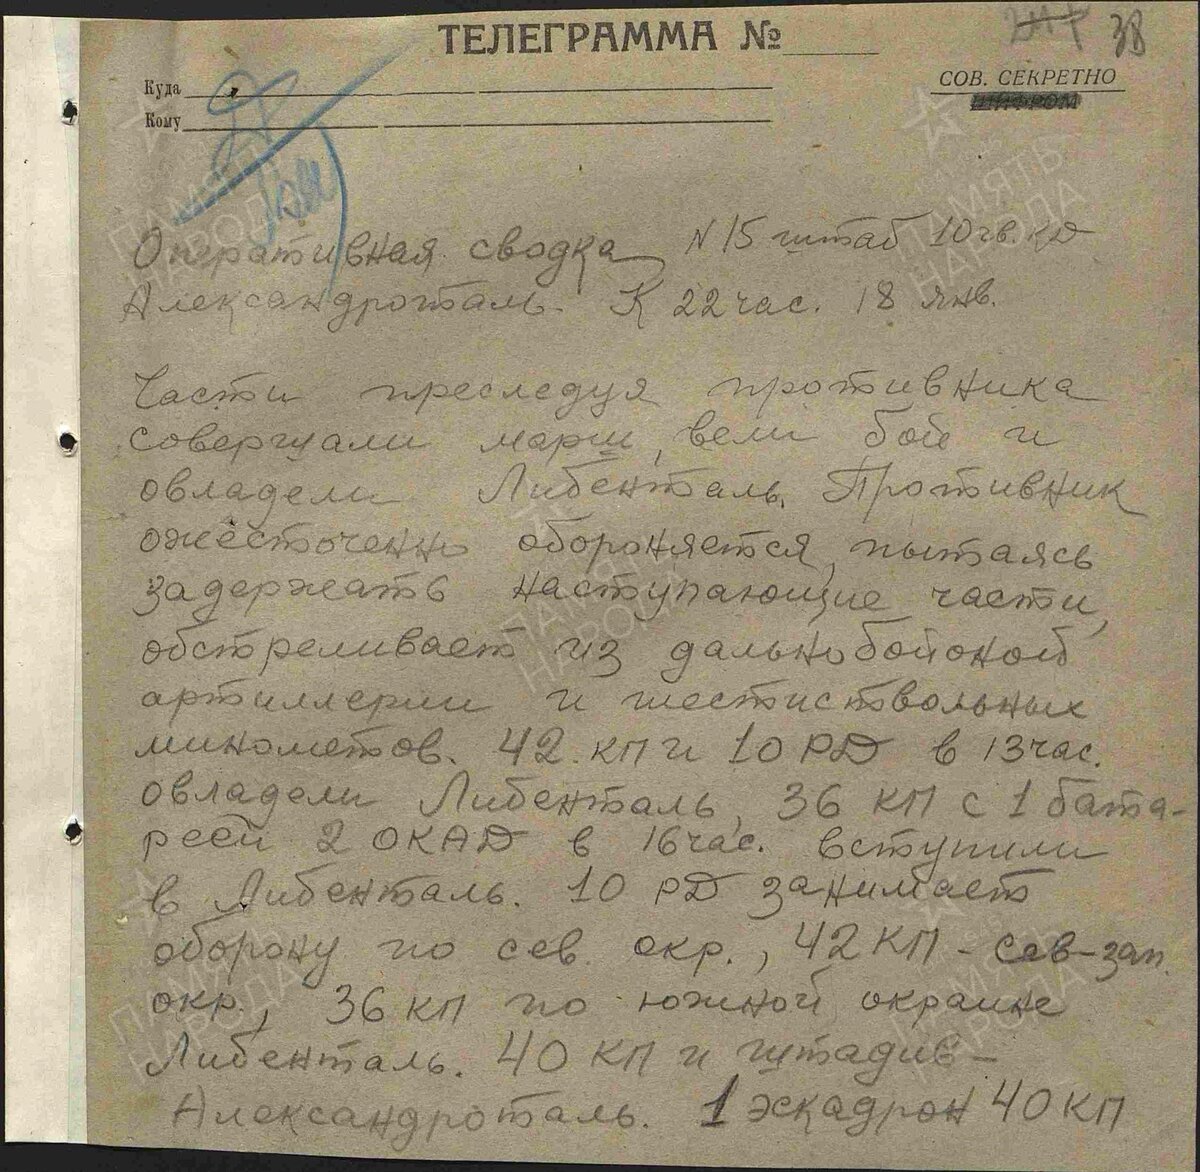 ТЕЛЕГРАММА №
38
Куда
СОВ. СЕКРЕТНО
Кому
ШИФРОМ
Оперативная сводка N 15 штаб 10 гв. КД
Александроталь. К 22 час. 18 янв.
Части преследуя противника
совершали марш, вели бой и
овладели Либенталь. Противник
ожесточенно обороняется, пытаясь
задержать наступающие части,
обстреливает из дальнобойной
артиллерии и шестиствольных
минометов. 42 КП и 10 РД в 13 час.
овладели Либенталь, 36 КП с 1 бата-
реей 2 ОКАД в 16 час. вступили
в Либенталь. 10 РД занимает
оборону по сев. окр., 42 КП - сев-зап.
окр., 36 КП по южной окраине
Либенталь. 40 КП и штадив -
Александроталь. 1 эскадрон 40 КП
ПАМЯТЬ НАРОДА